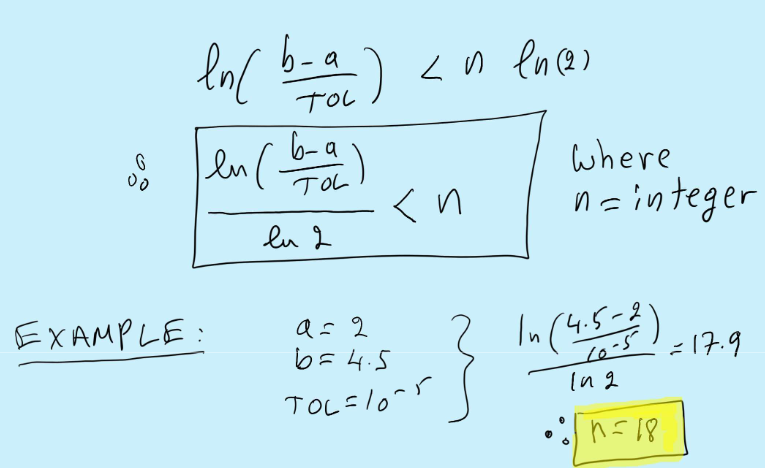 ln( b-a / TOL ) < n ln(2)
∴ ln( b-a / TOL ) / ln 2 < n where n = integer
EXAMPLE: a = 2
b = 4.5
TOL = 10^-5
} ln( 4.5-2 / 10^-5 ) / ln 2 = 17.9
∴ n = 18